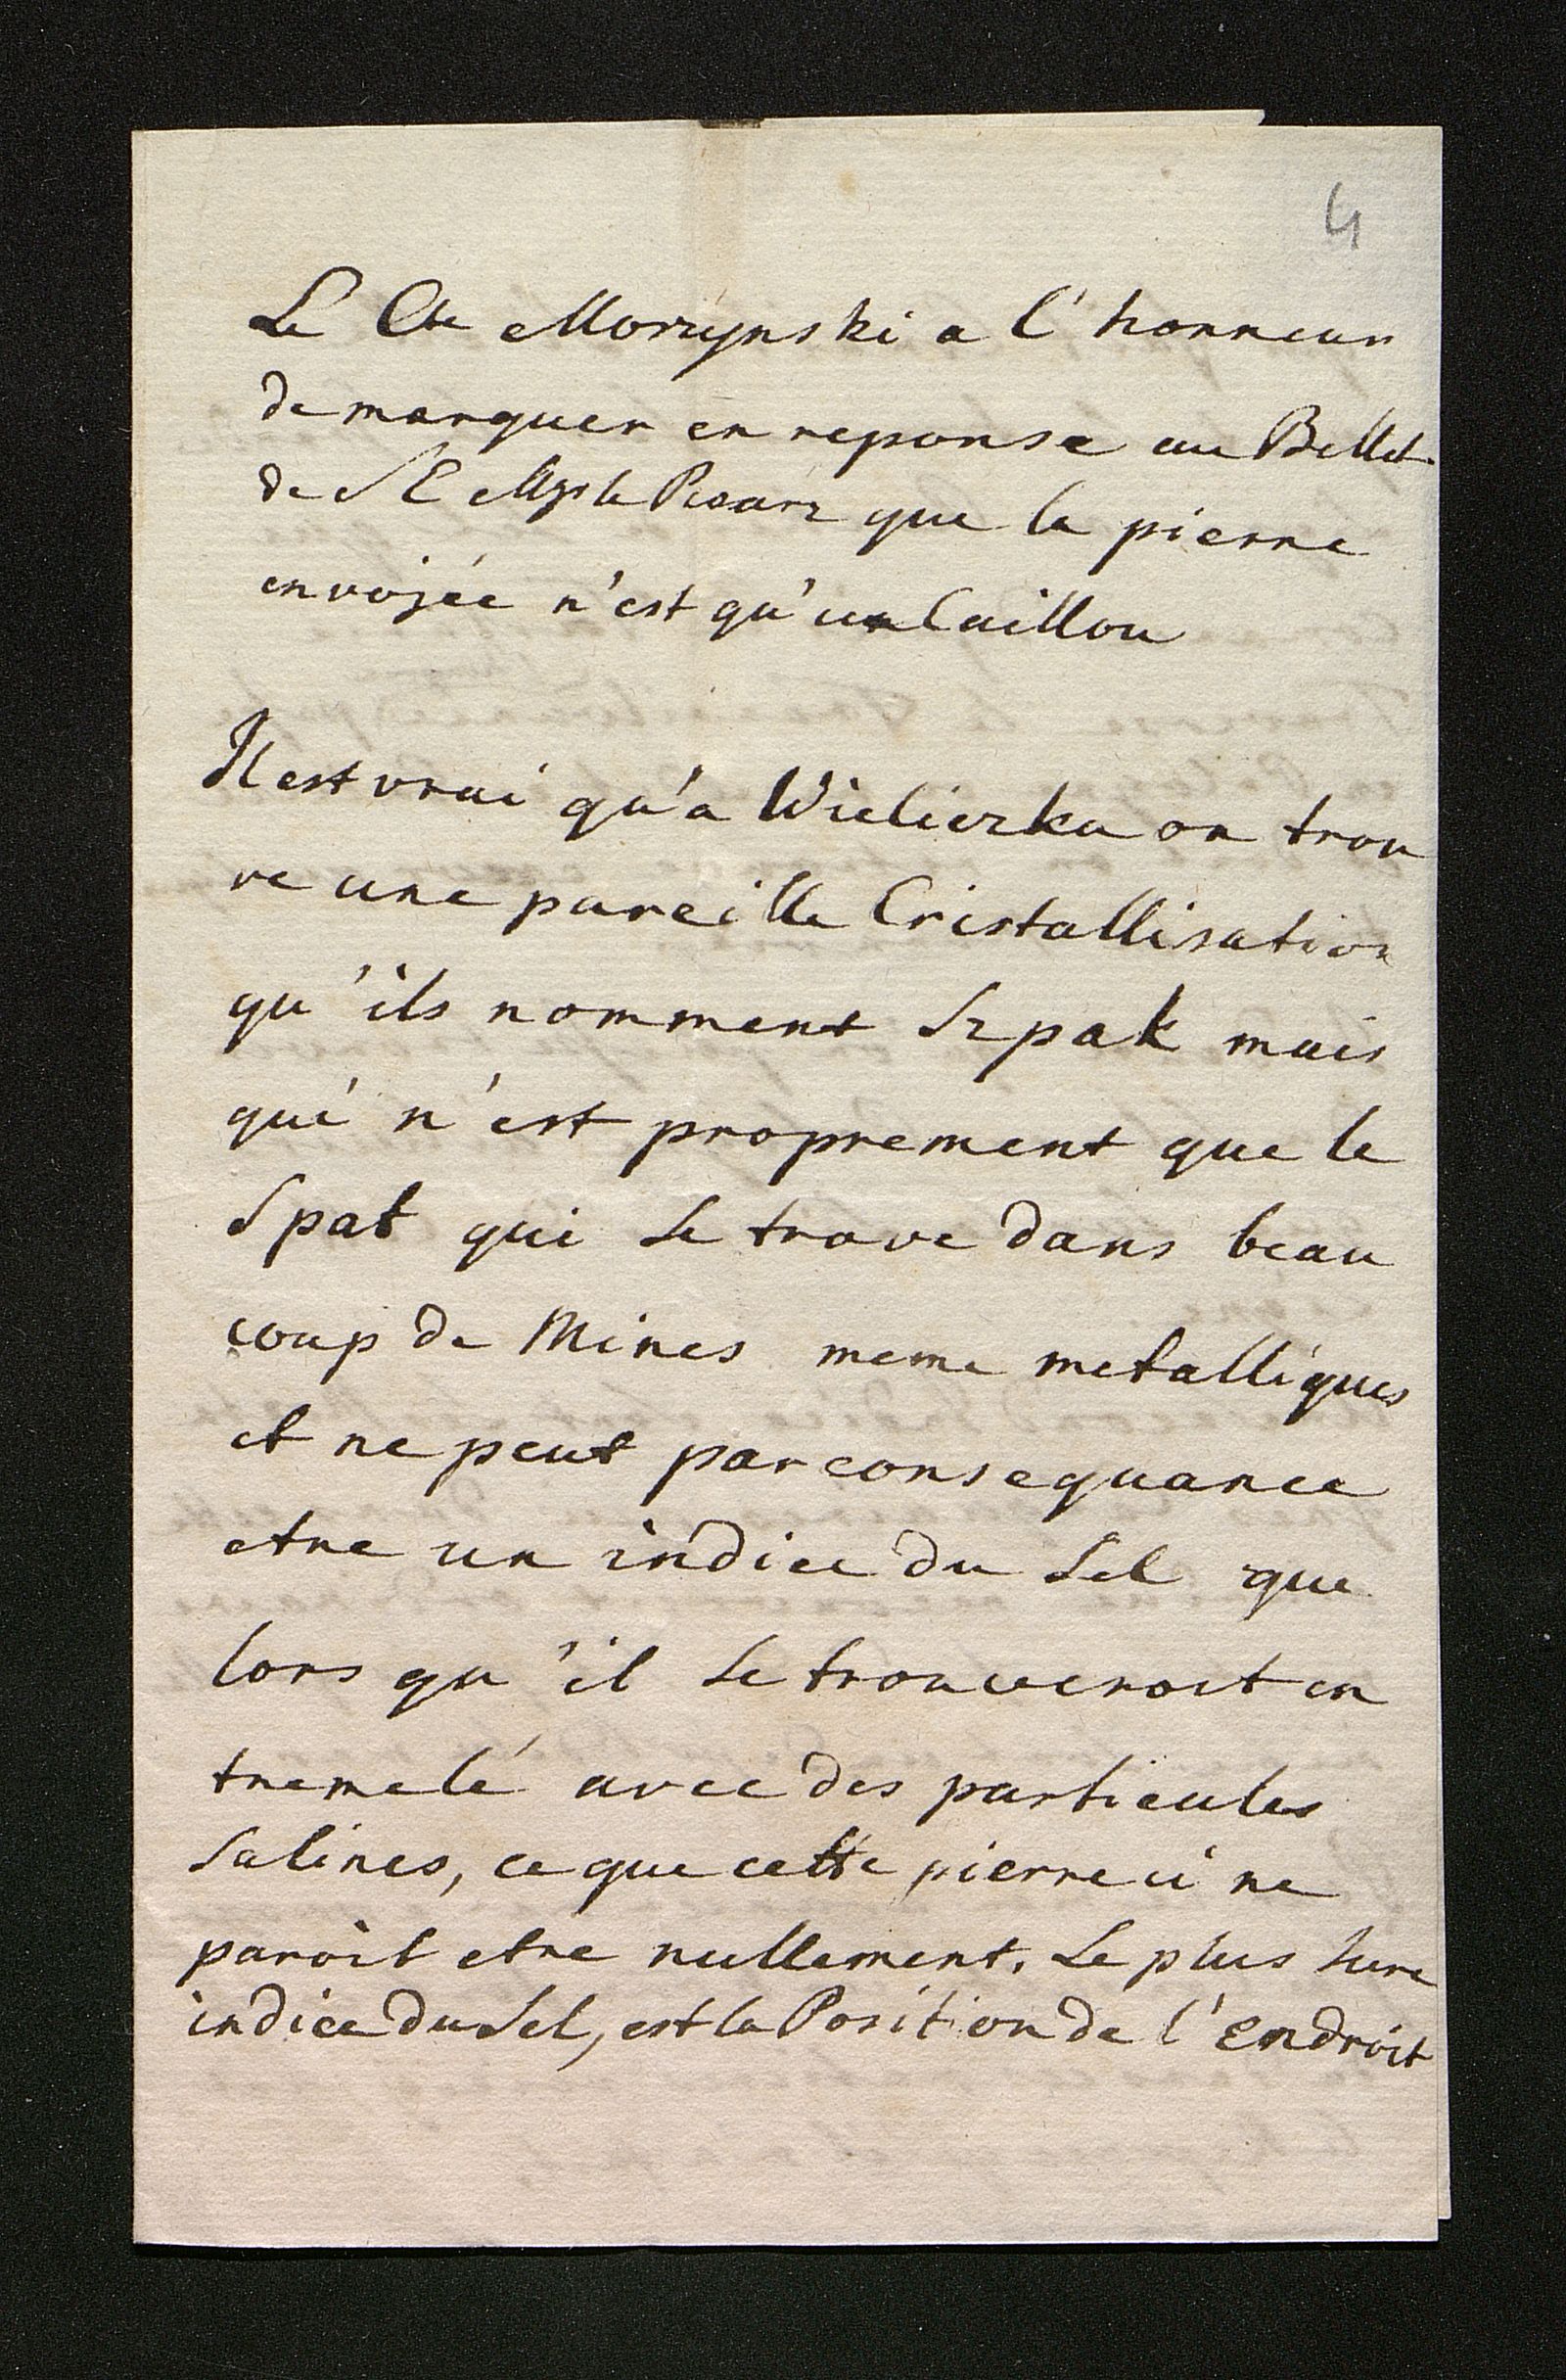 4
Le Cte Morzynski a l'honneur
de marquer en reponse au Billet
de S E Mgr le Pisarz que la pierre
envojée n'est qu'un Caillou
Il est vrai qu'a Wieliczka on trou
ve une pareille Cristallisation
qu'ils nomment Szpak mais
qui n'est proprement que le
Spat qui se trove dans beau
coup de Mines meme metalliques
et ne peut par consequance
etre un indice du Sel que
lors qu'il se trouveroit en
tremelé avec des particules
Salines, ce que cette pierre ci ne
paroit etre nullement. Le plus sure
indice du Sel, est la Position de l'endroit